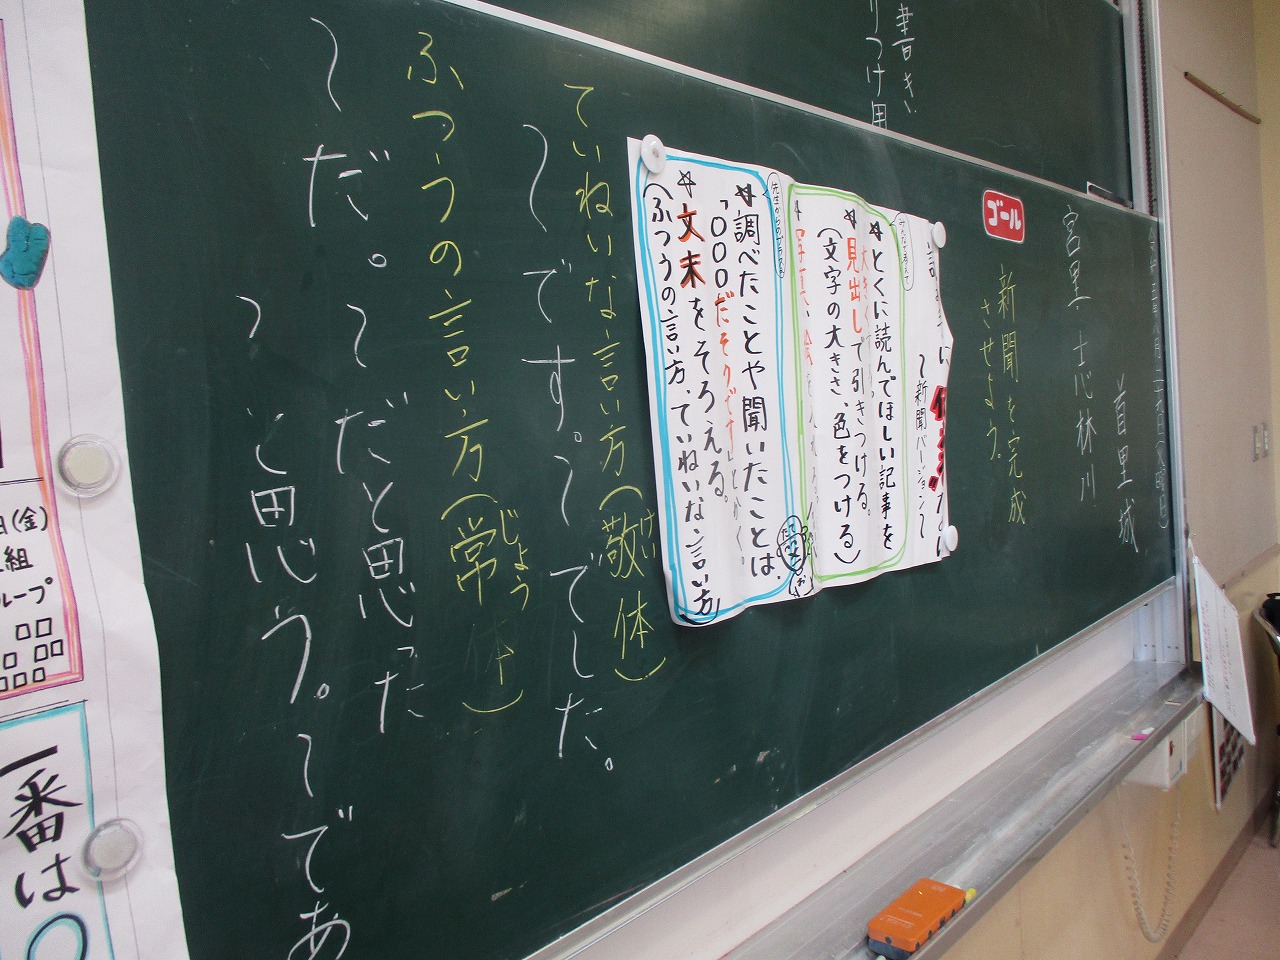 書き
りつけ用
首里城
宮里 志林川
ゴール
新聞を完成
させよう。
〜新聞バージョン〜
☆とくに読んでほしい記事を
大きく
見出しで引きつける。
(文字の大きさ、色をつける)
先生からのプラスα
☆調べたことや聞いたことは、
「○○○だそうです」とかく。
☆文末をそろえる。
(ふつうの言い方、ていねいな言い方)
ていねいな言い方(敬体)
けい
〜です。〜でした。
ふつうの言い方(常体)
じょう
〜だ。〜だと思った
〜と思う。〜であ
(金)
組
ループ
一番は